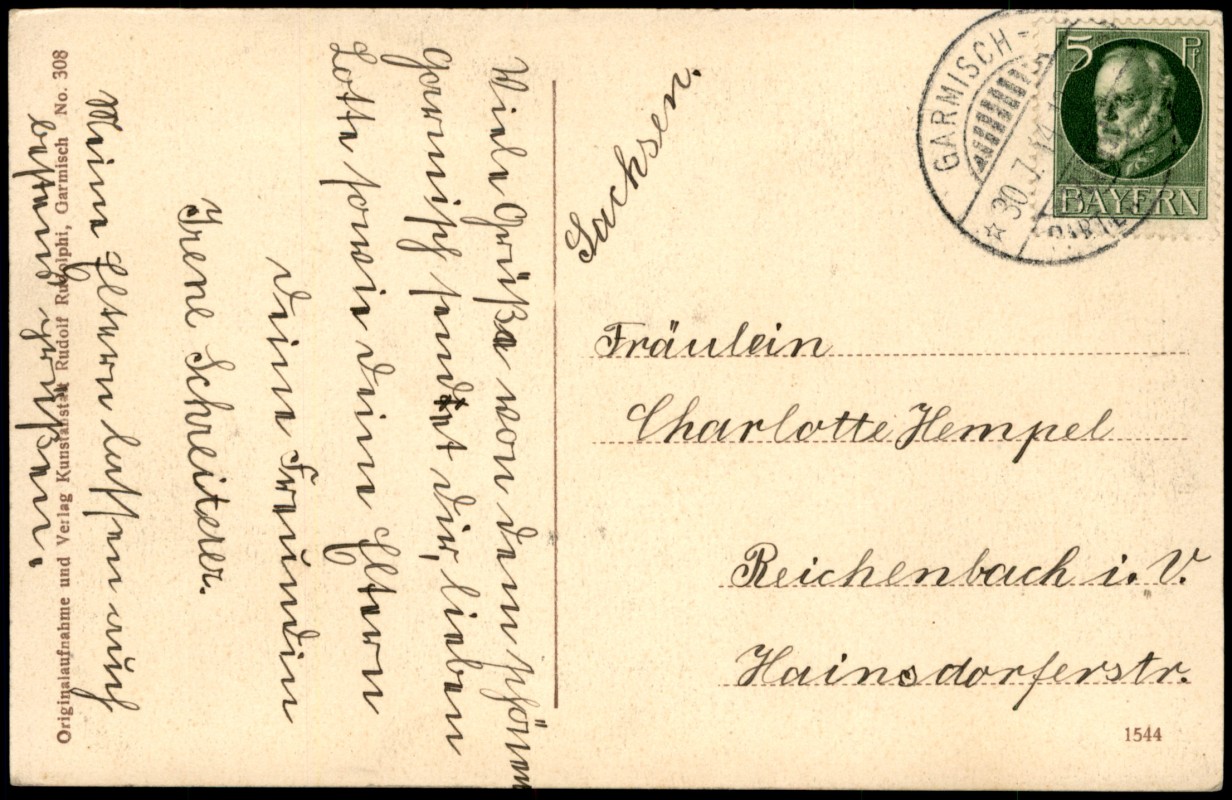 Viele Grüße von dem schönen
Garmisch sendet dir, lieben
Lotte sowie deine Eltern
deine Freundin
Irene Schreiterer.
Meine Eltern lassen auch
bestens grüßen
Originalaufnahme und Verlag Kunstanstalt Rudolf Rudolphi, Garmisch No. 308
Sachsen.
GARMISCH-
30.7.14.
PARTE
5 Pf
BAYERN
Fräulein
Charlotte Hempel
Reichenbach i. V.
Hainsdorferstr.
1544